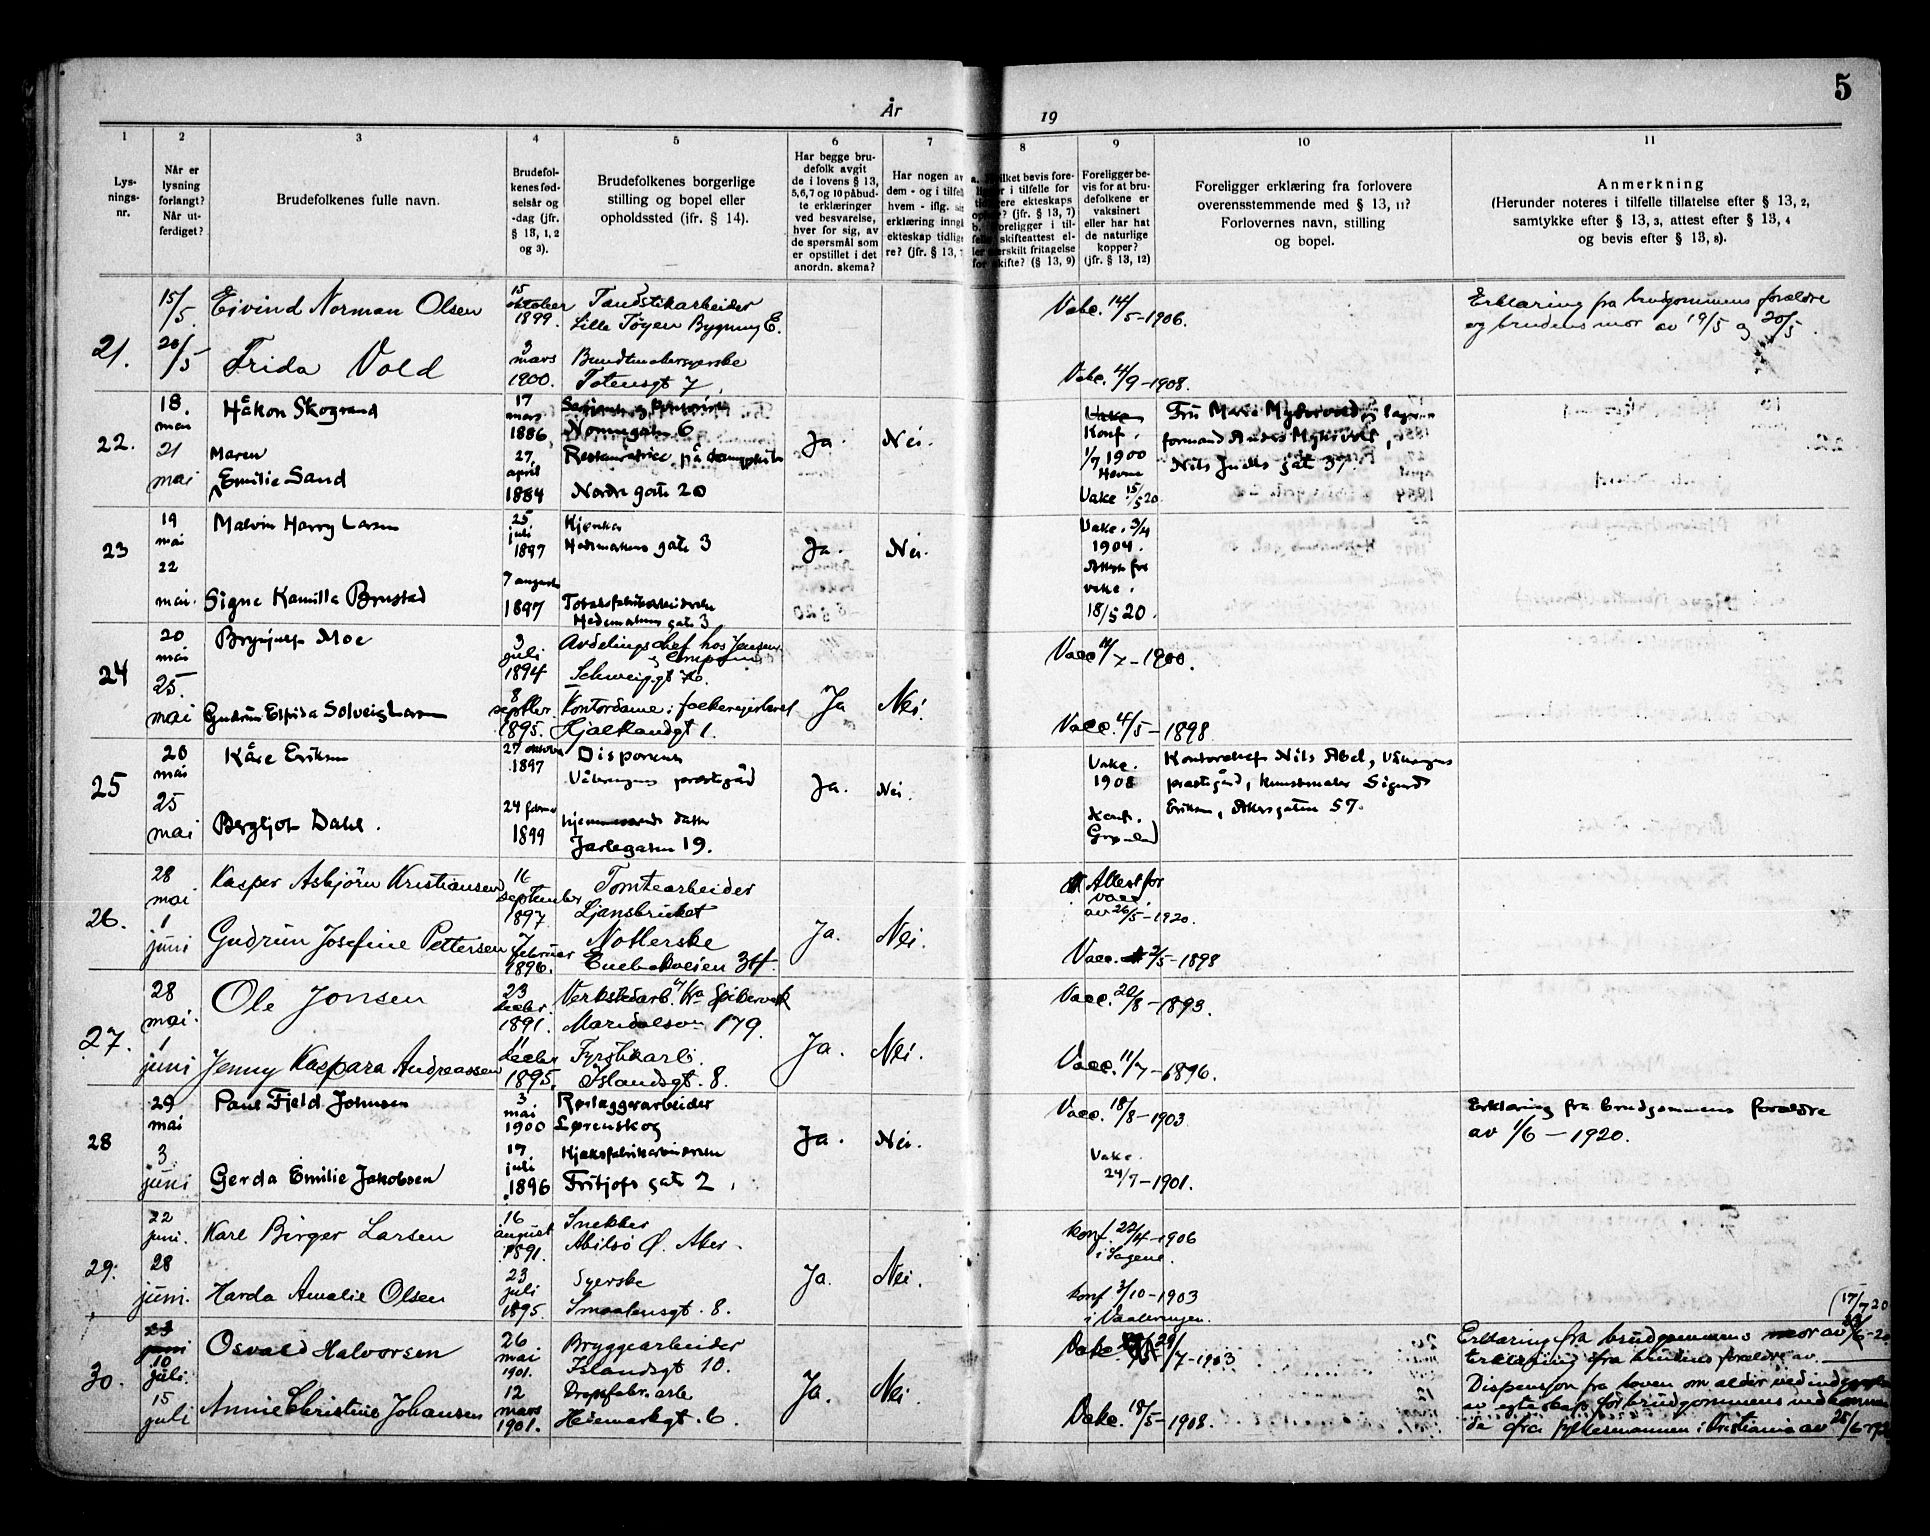 År
19
5
1 2 3 4 5 6 7 8 9 10 11
Lys-
nings-
nr.
Når er
lysning
forlangt?
Når ut-
ferdiget?
Brudefolkenes fulle navn.
Brudefol-
kenes fød-
selsår og
-dag (jfr.
§ 13, 1, 2
og 3).
Brudefolkenes borgerlige
stilling og bopel eller
opholdssted (jfr. § 14).
Har begge bru-
defolk avgit
de i lovens § 13,
5,6,7 og 10 påbud-
te erklæringer
ved besvarelse,
hver for sig, av
de spørsmål som
er opstillet i det
anordn. skema?
Har nogen av
dem - og i tilfelle
hvem - iflg.
erklæring inngåt
ekteskap tidlige-
re? (jfr. § 13,
Hvilket bevis fore-
ligger i tilfelle for
tidligere ekteskaps
ophør? (jfr. § 13, 7)
b. Foreligger i til-
felle skifteattest el-
ler særskilt fritagelse
for skifte? (§ 13, 9)
Foreligger be-
vis for at bru-
defolkene er
vaksinert
eller har hat
de naturlige
kopper?
(jfr. § 13, 12)
Foreligger erklæring fra forlovere
overensstemmende med § 13, 11?
Forlovernes navn, stilling
og bopel.
Anmerkning
(Herunder noteres i tilfelle tillatelse efter § 13, 2,
samtykke efter § 13, 3, attest efter § 13, 4
og bevis efter § 13, 8).
21. 15/5. Eivind Norman Olsen 15 oktober 1899. Tandstikarbeider Lille Tøyen Bygning E. Vakc. 14/5-1906. Erklæring fra brudgommens forældre
og brudens mor av 19/5 og 20/5.
20/5 Frida Vold 3 mars 1900. Bundtmakersyerske Totensgt 7. Vakc. 4/9-1908.
22. 18. mai Håkon Skogrand 17 mars 1886, 6 Ja. Nei. Vakc Konf. 1/7 1900 Fru Marie og lager-
formand
Nils Juels gat 37.
21 mai Maren Emilie Sand 27. april 1884 Restauratrice på Nordre gate 20 Vakc 15/5 20.
23 19 mai Malvin Harry Larsen 25. juli 1897 Hedemarkens gate 3 Ja. Nei. Vakc. 3/4 1904.
22 mai. Signe Kamilla Brustad 7 august 1897 Hedemarkens gate 3 Attest fra vakc. 18/5 20.
24 20 mai Brynjulf Moe 3 juli 1894 Avdelingschef hos Jensen
Schweigsgt 70. Ja Nei. Vacc 11/7-1900.
25. mai Gudrun Elfrida Solveig Larsen 8 septbr. 1895. Kontordame Hjalklandgt 1. Vacc. 4/5-1898.
25 20 mai Kåre Eriksen 27 oktober 1897 Disponent
Vålerengens prestegård Ja. Nei. Vakc. 1908 Kontorchef Nils Abel, Vålerengens
prestegård, kunstmaler Sigurd
Eriksen, Akersgaten 57.
25 mai Bergljot Dahl. 24 februar 1899 hjemmeværende datter
Jarlegaten 19. Konf. Grønland
26. 28 mai Kasper Asbjörn Kristiansen 16 september 1897. Tomtearbeider
Ljansbruket Ja. Nei. Attest for vacc. av 26/5-1920.
1 juni Gudrun Josefine Pettersen 7 februar 1896. Enebakveien 34. Vacc. 2/5-1898
27. 28 mai. Ole Jonsen 23 decbr. 1891. Verkstedarb.
Maridalsvn 179. Ja. Nei. Vacc. 20/8-1893.
1 juni Jenny Kaspara Andreassen 11 decbr 1895. Fyrstikarb.
Islandsgt. 8. Vacc. 11/7-1896.
28 29 mai Paul Fjeld Johnsen 3. mai 1900 Rørlæggerarbeider
Lørenskog Ja. Nei. Vacc. 18/8-1903 Erklæring fra brudgommens forældre
av 1/6-1920.
3 juni Gerda Emilie Jakobsen 17. juli 1896 Kjeksfabrikarbeiderske
Fritjofs gate 2. Vakc. 24/7-1901.
29. 22 juni. Karl Birger Larsen 16 august 1891. Snekker
Abilsö Ø. Aker. Ja. Nei. Konf. 22/4-1906
i Sagene.
28 juni. Harda Amalie Olsen 23 juli 1895 Syerske
Smaalensgt. 8. Konf 3/10-1903
i Vaalerengen.
30. 23 juni 10 juli. Osvald Halvorsen 26 mai 1901. Bryggearbeider
Islandsgt 10. Ja. Nei. Vakc. 29/7-1903 (17/7 20
Erklæring fra brudgommens mor av 23/6-20
Erklæring fra brudens forældre av
15 juli Annie Christine Johansen 12 mars 1901. Hedemarksgt. 6. Vakc. 18/5-1908. Dispensasjon fra loven om alder ved indgaaelse
av egteskap for brudgommens vedkommen-
de fra fylkesmannen i Kristiania av 25/6-1920